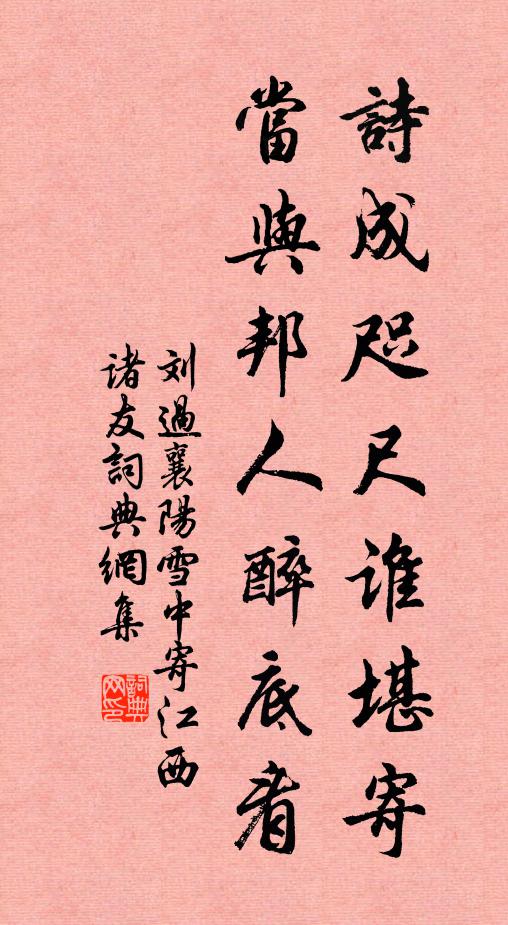 詩成咫尺誰堪寄
當與邦人醉底看
刘過襄陽雪中寄江西
诸友詞典網集
詞典网印